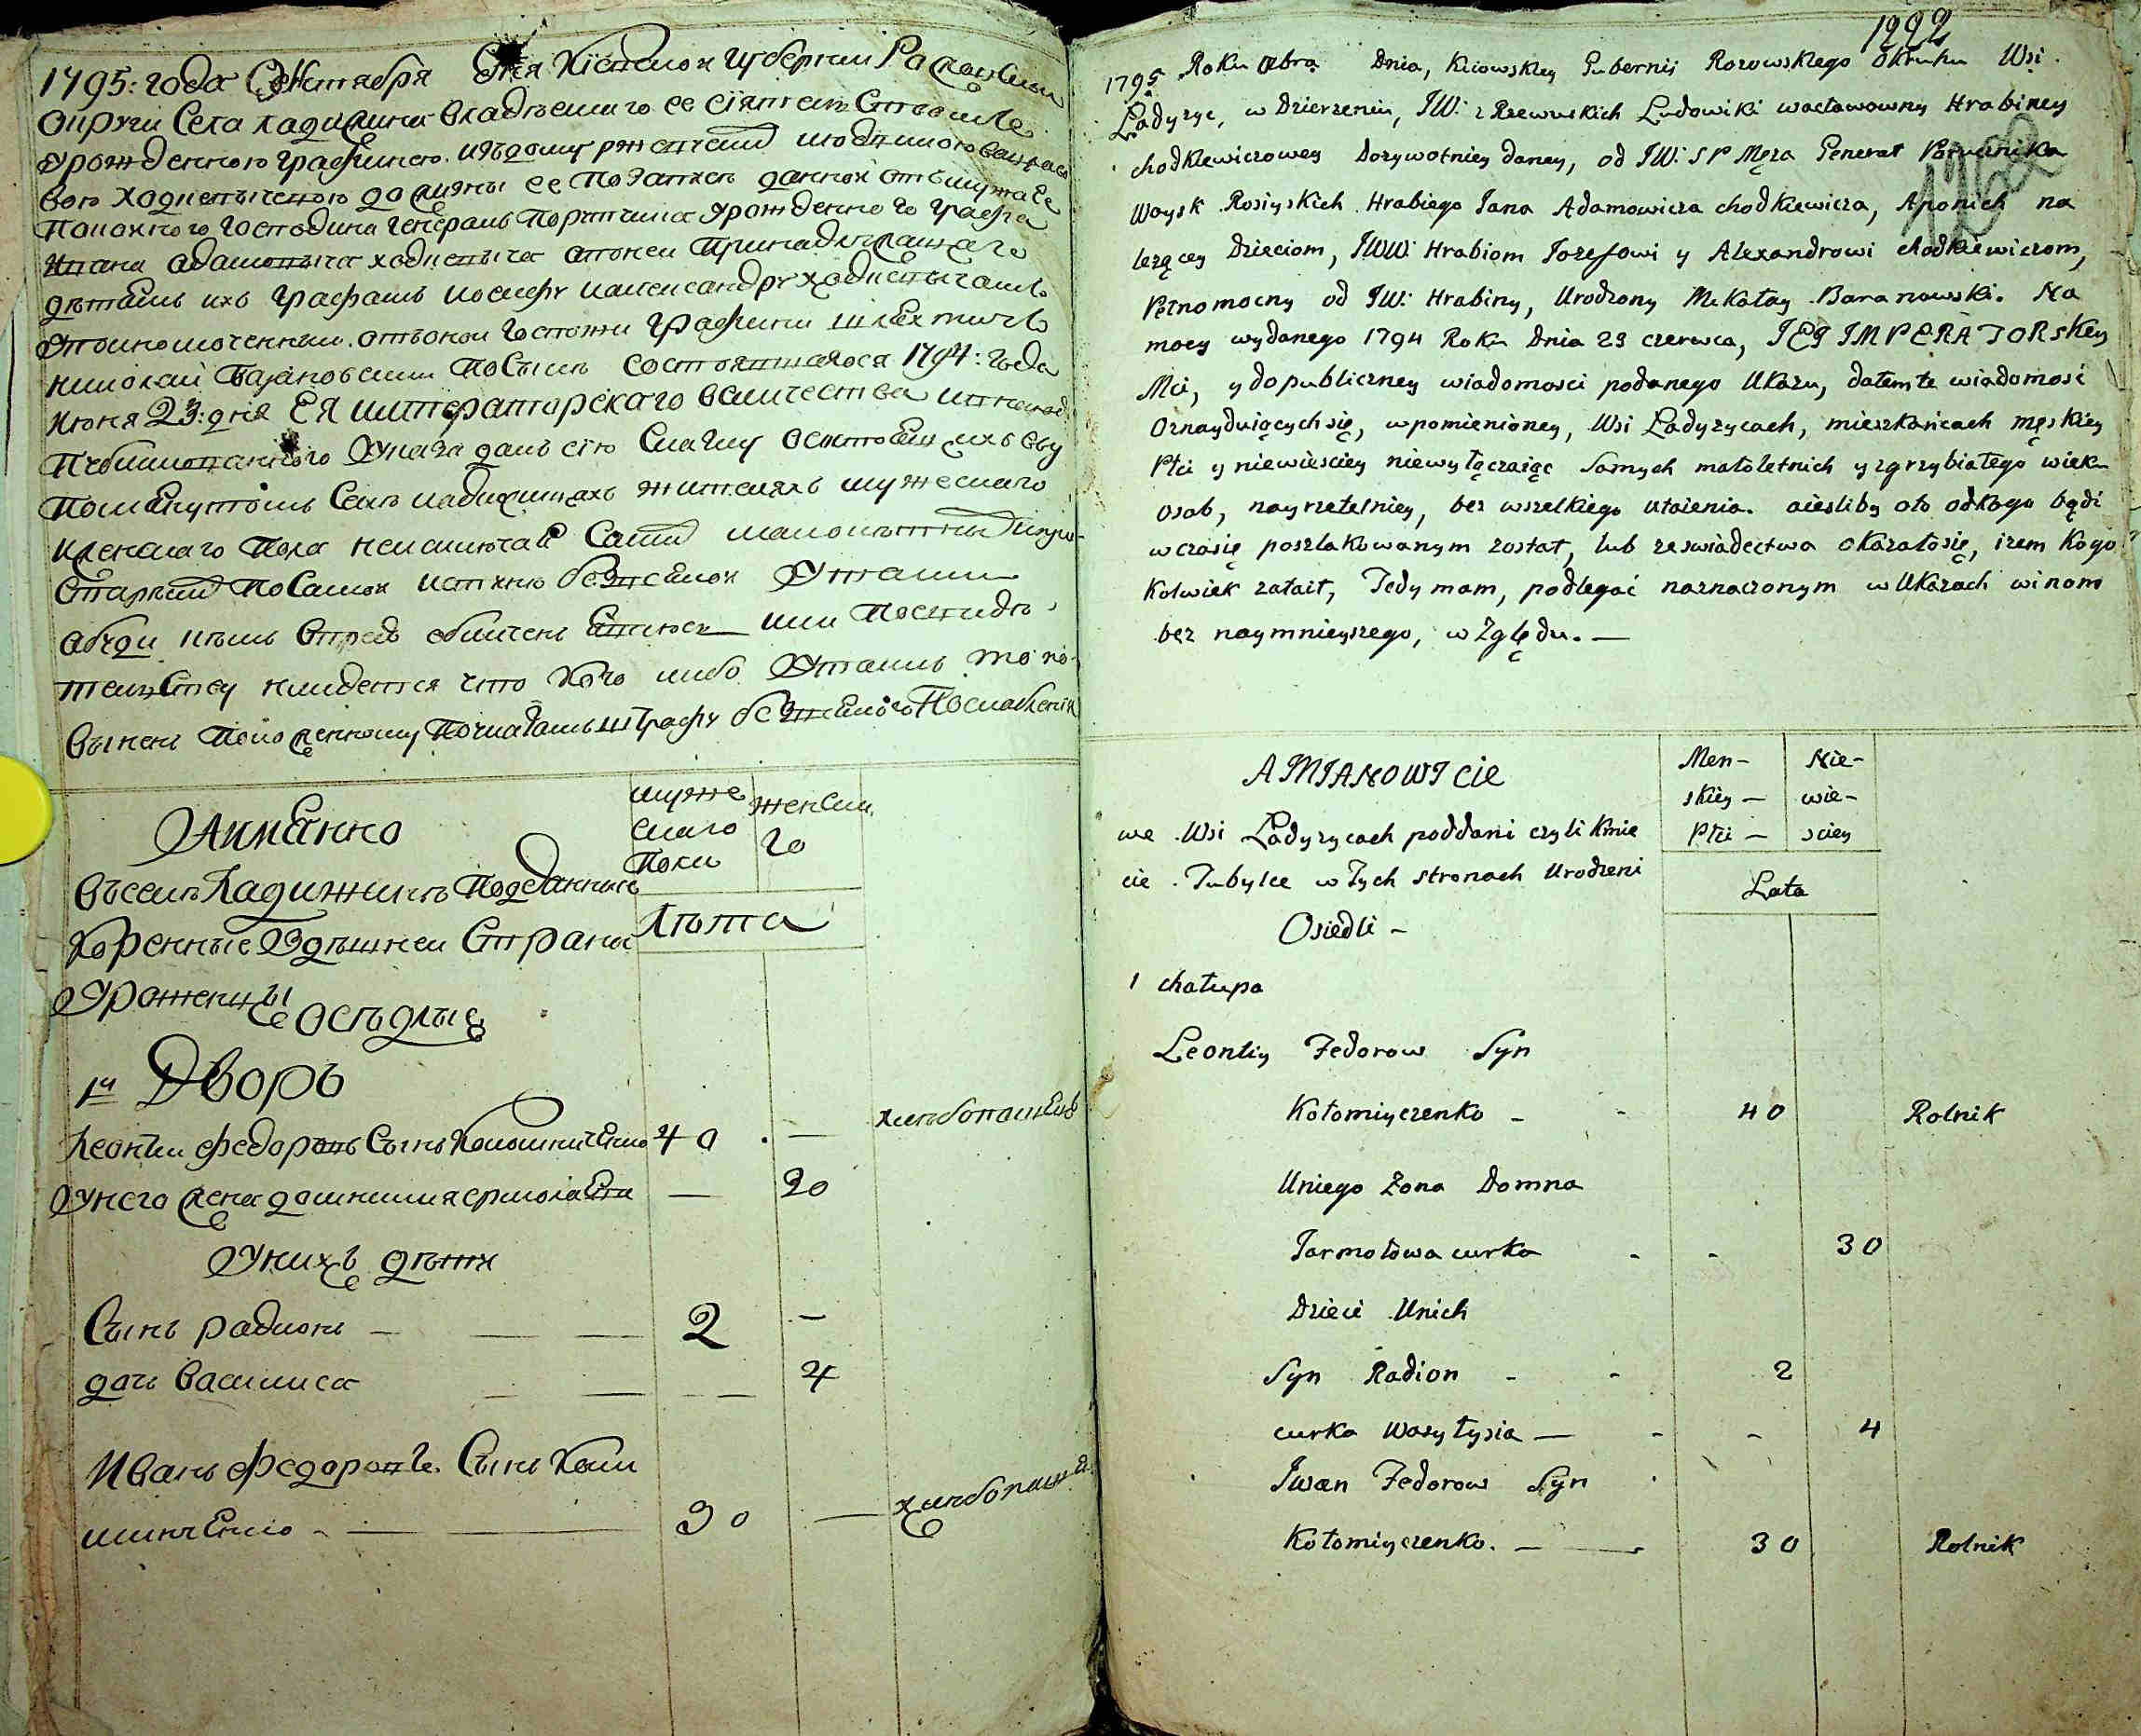 1795: года Октября Дня Кіевской губерніи
округи Села Ладижичь владѣемаго ее сіятельством
Урожденною графинею
вою Ходкевичевою ее по Записѣ данной отъ мужа ее
Покойного Господина генералъ Порутчика Урожденного графа
Ивана адамовича ходкевича опонеи Принадлежащаго
дѣтемъ ихъ графамъ иосифу иалександру ходкевичамъ
Уполномоченный отъоной Госпожи графини шляхтичъ
николай Барановский Посылѣ состоявшагося 1794: года
июня 23: дня ЕЯ императорскаго величества
Публикованного Указа далъ сію Скаску осостоящихъ въ
Помянутомъ Селѣ Ладижичахъ жителяхъ мужескаго
иженскаго Пола неисключай Самыхъ малолѣтныхъ
Старыхъ ПоСамой истинѣ безвсякой Утайки
абуди кѣмъ впредь обличенъ явлюсь или Посвидѣ-
тельству найдется что кого либо Утаилъ то по-
виненъ Положенному Поуказамъ штрафу безвсякого Послабленія
Аимянно
муже
скаго
Пола
женска
го
въселѣ Ладижичѣ Подданные
Коренные Здѣшней Страны
Уроженцы осѣдлые
Лѣта
1й Дворъ
Леонтий Федоровъ Сынъ Коломийченко 40 . — хлѣбопашецъ
Унего жена домникия ермолаева — 30
Унихъ дѣти
Сынъ радионъ — — — 2 —
дочь василиса — — — — 4
Иванъ Федоровъ Сынъ Коло
мийченко - — — 30 — хлѣбопашец
1292
1795 Roku 8bra Dnia, Kiiowskiey Gubernii Rozowskiego Okruhu Wsi
Ładyzyc, w Dzierzeniu, JW: z Rzewuskich Ludowiki wacławowny Hrabiney
chodkiewiczowey Dozywotniey daney, od JW: S P Męza Generał Porucznika
Woysk Rosiyskich Hrabiego Jana Adamowicza chodkiewicza, Aponiey na
lezącey Dzieciom, JWW: Hrabiom Jozefowi y Alexandrowi chodkiewiczom,
Pełnomocny od JW: Hrabiny, Urodzony Mikołay Baranowski. Na
mocy wydanego 1794 Roku Dnia 23 czerwca, JEY IMPERATORSkiey
Mci, y do publiczney wiadomosci podanego Ukazu, dałem te wiadomosć
Oznayduiącychsię, wpomienioney, Wsi Ładyzycach, mieszkańcach męskiey
Płci y niewiesciey niewyłączaiąc samych małoletnich y zgrzybiałego wieku
osob, nayrzetelniey, bez wszelkiego utaienia. aiesliby oto odkogo bądź
wczasię poszlakowanym został, lub ze swiadectwa okazałosię, izem Kogo
kolwiek zataił, Tedy mam, podlegać naznaczonym w Ukazach winom
bez naymnieyszego, względu. —
AMIANOWICIE
Men-
skiey —
Płci —
Nie-
wie-
sciey
we Wsi Ładyzycach poddani czyli Kmie
cie Tubylce w Tych stronach Urodzeni
Lata
Osiedli -
1 chałupa
Leontiy Fedorow Syn
Kołomiyczenko - - 40 Rolnik
Uniego Zona Domna
Jarmołowa curka - - 30
Dzieci Unich
Syn Radion - - 2
curka Wasyłysia — - - 4
Iwan Fedorow Syn
Kołomiyczenko. — — 30 Rolnik